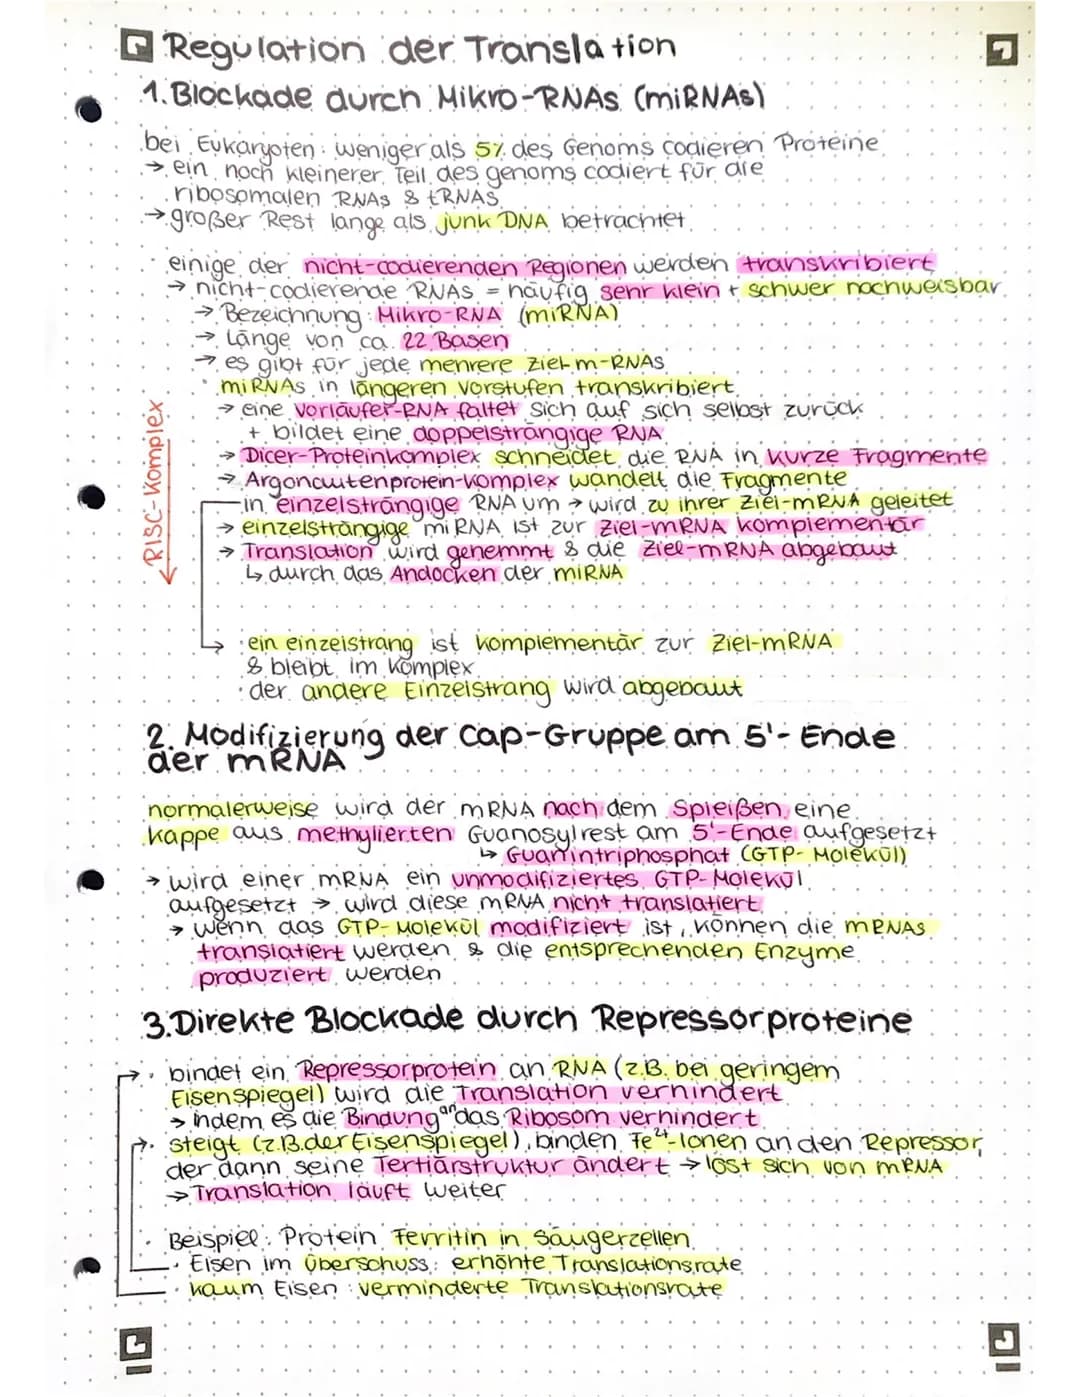 Regulation der Translation
1. Blockade durch Mikro-RNAs (miRNAs)
bei Eukaryoten: weniger als 5% des Genoms codieren Proteine
→ ein noch kleinerer Teil des genoms codiert für die
ribosomalen RNAs & tRNAs
→ großer Rest lange als junk DNA betrachtet
einige der nicht-codierenden Regionen werden transkribiert
→ nicht-codierende RNAs = häufig sehr klein + schwer nachweisbar
→ Bezeichnung: Mikro-RNA (miRNA)
→ Länge von ca. 22 Basen
→ es gibt für jede mehrere Ziel-m-RNAs
• miRNAs in längeren Vorstufen transkribiert
→ eine Vorläufer-RNA faltet sich auf sich selbst zurück
+ bildet eine doppelsträngige RNA
→ Dicer-Proteinkomplex schneidet die RNA in kurze Fragmente
→ Argonautenprotein-Komplex wandelt die Fragmente
in einzelsträngige RNA um → wird zu ihrer Ziel-mRNA geleitet
→ einzelsträngige miRNA ist zur Ziel-mRNA komplementär
→ Translation wird gehemmt & die Ziel-mRNA abgebaut
↳ durch das Andocken der miRNA
RISC-Komplex
• ein einzelstrang ist komplementär zur Ziel-mRNA
& bleibt im Komplex
• der andere Einzelstrang wird abgebaut
2. Modifizierung der Cap-Gruppe am 5'-Ende
der mRNA
normalerweise wird der mRNA nach dem Spleißen eine
Kappe aus methylierten Guanosylrest am 5'-Ende aufgesetzt
↳ Guanintriphosphat (GTP-Molekül)
→ wird einer mRNA ein unmodifiziertes GTP-Molekül
aufgesetzt → wird diese mRNA nicht translatiert
→ wenn das GTP-Molekül modifiziert ist, können die mRNAs
translatiert werden & die entsprechenden Enzyme
produziert werden
3. Direkte Blockade durch Repressorproteine
• bindet ein Repressorprotein an RNA (z.B. bei geringem
Eisenspiegel) wird die Translation verhindert
→ indem es die Bindung an das Ribosom verhindert
• steigt (z.B. der Eisenspiegel), binden Fe²⁺-Ionen an den Repressor,
der dann seine Tertiärstruktur ändert → löst sich von mRNA
→ Translation läuft weiter
• Beispiel: Protein Ferritin in Säugerzellen
• Eisen im Überschuss: erhöhte Translationsrate
• kaum Eisen: verminderte Translationsrate